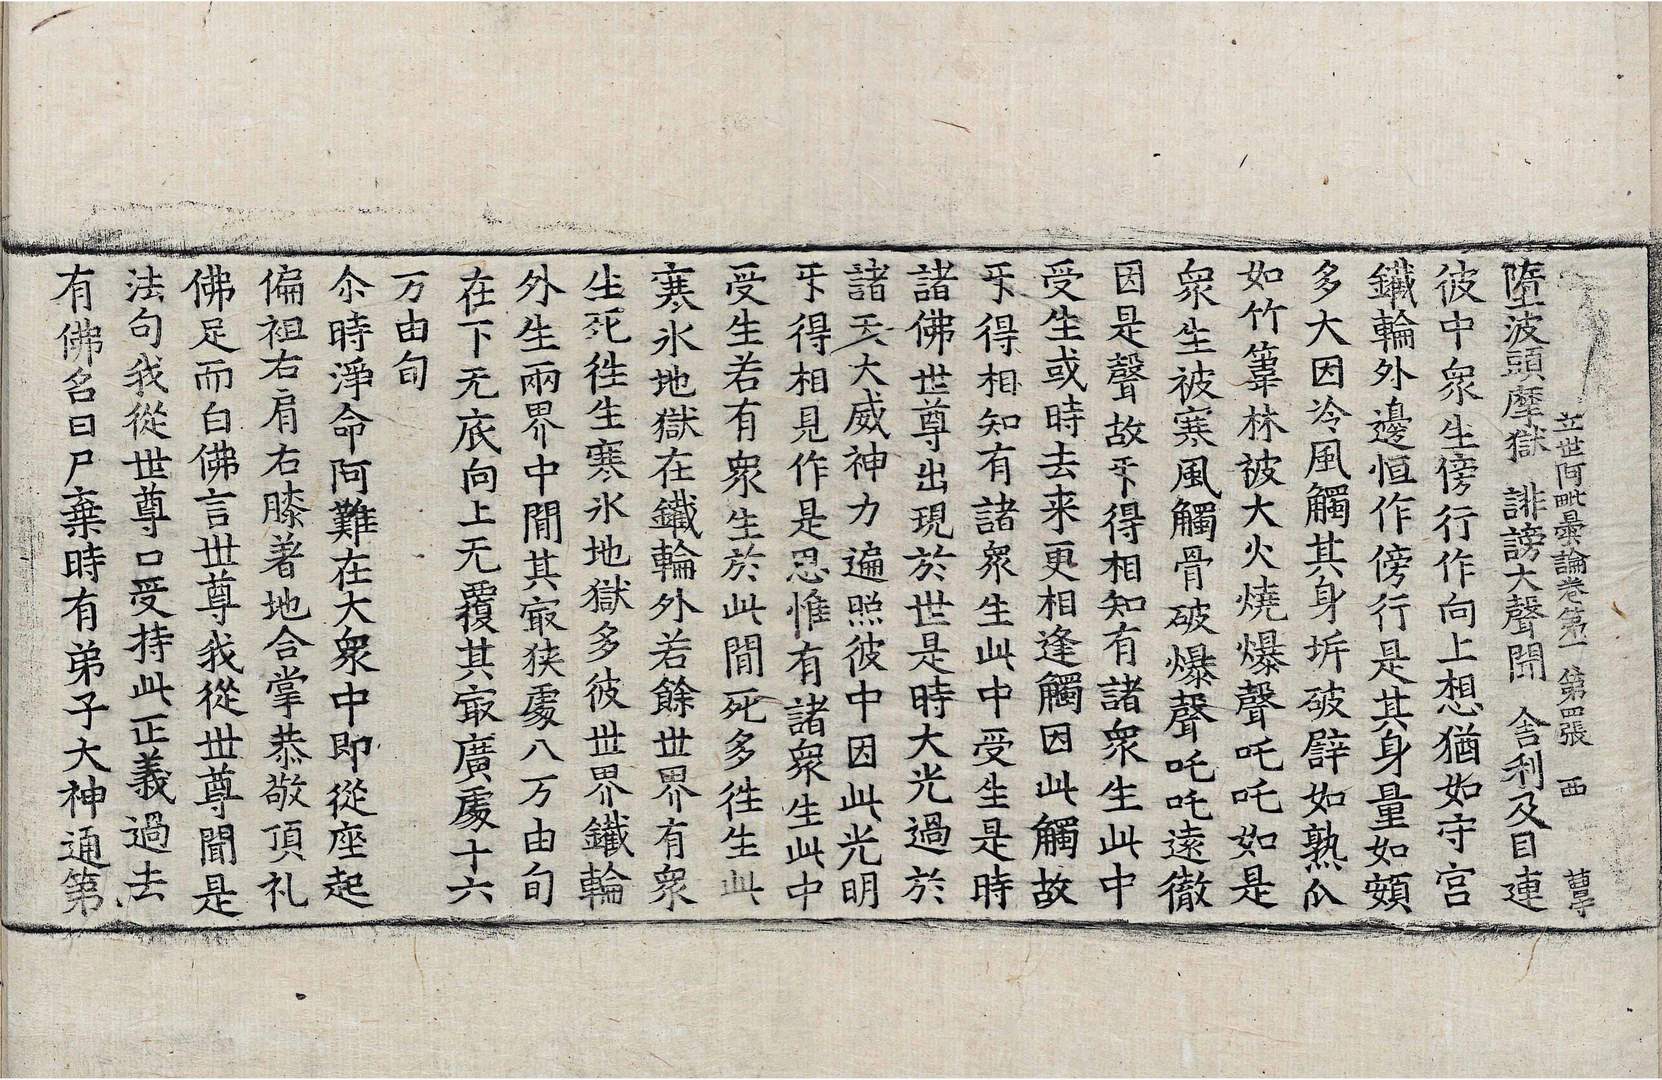 立世阿毗曇論卷第一 第四張 西 曺子
墮波頭摩獄 誹謗大聲聞 舍利及目連
彼中衆生傍行作向上想猶如守宮
鐵輪外邊恒作傍行是其身量如頞
多大因冷風觸其身坼破譬如熟瓜
如竹葦林被大火燒爆聲吒吒如是
衆生被寒風觸骨破爆聲吒吒遠徹
因是聲故㸦得相知有諸衆生此中
受生或時去来更相逢觸因此觸故
㸦得相知有諸衆生此中受生是時
諸佛世尊出現於世是時大光過於
諸天大威神力遍照彼中因此光明
㸦得相見作是思惟有諸衆生此中
受生若有衆生於此間死多徃生此
寒氷地獄在鐵輪外若餘世界有衆
生死徃生寒氷地獄多彼世界鐵輪
外生兩界中間其㝡狹處八万由旬
在下无底向上无覆其㝡廣處十六
万由旬
尒時淨命阿難在大衆中即從座起
偏袒右肩右膝著地合掌恭敬頂礼
佛足而白佛言世尊我從世尊聞是
法句我從世尊口受持此正義過去
有佛名曰尸棄時有弟子大神通第